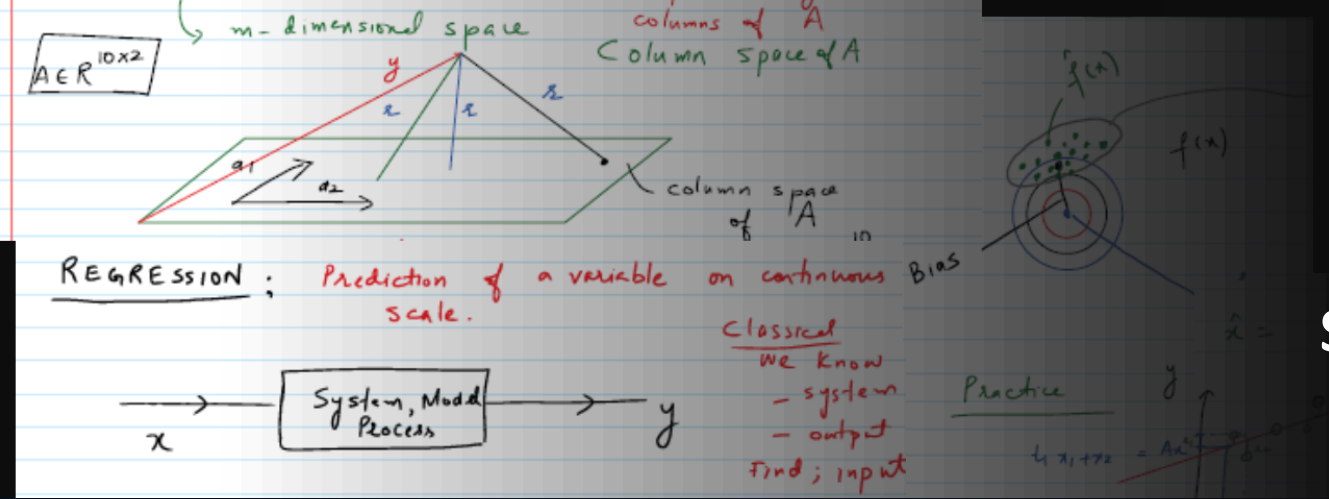 m-dimensional space
columns of A
Column space of A
A ∈ R^10x2
y
r
r
r
a1
a2
column space
of A
10
f(x)
f(x)
Bias
REGRESSION : Prediction of a variable on continuous
scale.
Classical
we know
- system
- output
Find ; input
x
System, Model
Process
y
x̂ =
Practice
y